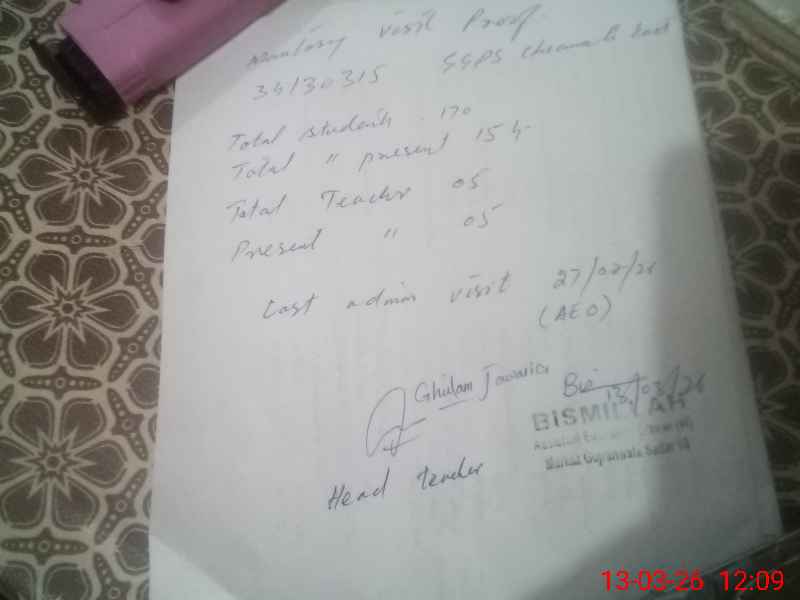 Monitory visit Proof
34130315 GGPS Cheema
Total students . 170
Total " present 154
Total Teacher 05
Present " 05
Last admin visit 27/02/26
(AEO)
Ghulam Jawaria
13/03/26
BISMILLAH
Markaz Gujranwala Saddar
Head teacher
13-03-26 12:09